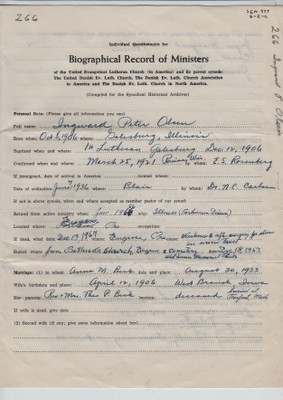 266
SEM 777
6-2-6
266 Ingward P. Olsen
Individual Questionnaire for
Biographical Record of Ministers
of the United Evangelical Lutheran Church (in America) and its parent synods:
The United Danish Ev. Luth. Church, The Danish Ev. Luth. Church Association
in America and The Danish Ev. Luth. Church in North America.
(Compiled for the Synodical Historical Archives)
Personal Data: (Please give all information possible)
Full name: Ingward Peter Olsen
Born when: Oct 5, 1906 where: Galesburg, Illinois
Baptized when and where: 1st Lutheran Galesburg Dec 12, 1906
Confirmed when and where: March 25, 1921 Racine, Wis. by whom: E. S. Rosenberg
If immigrated, date of arrival in America located where:
Date of ordination: June 1936 where: Blair by: Dr. N. C. Carlsen
If not in above synods, when and where accepted as member pastor of our synod:
Retired from active ministry when: 1968 why: Illness (Parkinson Disease)
Located where: Eugene
If dead, what date: Dec 13, 1969 where: Eugene, cause:
Buried where: from Bethesda Church, Eugene cemetery Dec 18, 1969
Marriage: (1) to whom: Anna M. Buck date and place: August 30, 1933
Wife's birthdate and place: April 12, 1906 West Branch, Iowa
Her parents: Rev & Mrs. Theo P. Buck location: deceased
If wife is dead, give date
(2) Second wife (if any; give same information about her).